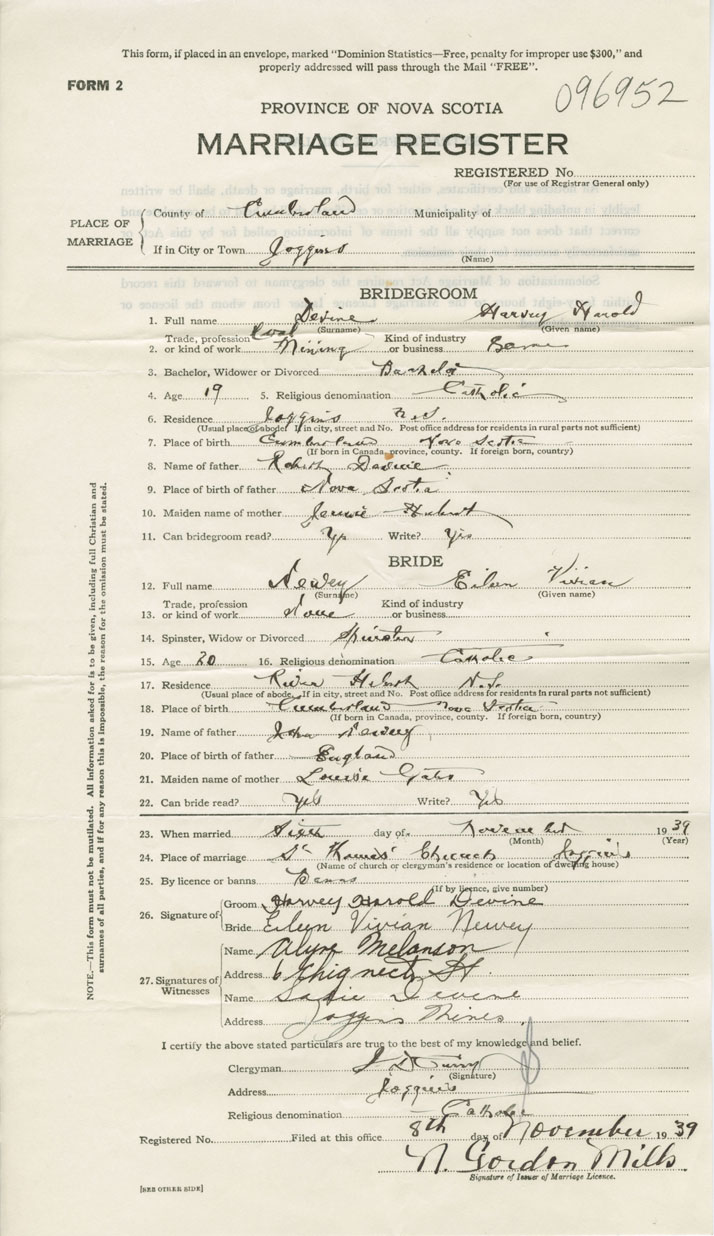 This form, if placed in an envelope, marked "Dominion Statistics—Free, penalty for improper use $300," and
properly addressed will pass through the Mail "FREE".
FORM 2
096952
PROVINCE OF NOVA SCOTIA
MARRIAGE REGISTER
REGISTERED No.
(For use of Registrar General only)
PLACE OF MARRIAGE
County of Cumberland Municipality of
If in City or Town Joggins
(Name)
BRIDEGROOM
1. Full name Devine Harvey Harold
(Surname) (Given name)
2. Trade, profession or kind of work Coal Mining Kind of industry or business Same
3. Bachelor, Widower or Divorced Bachelor
4. Age 19 5. Religious denomination Catholic
6. Residence Joggins N.S.
(Usual place of abode. If in city, street and No. Post office address for residents in rural parts not sufficient)
7. Place of birth Cumberland Nova Scotia
(If born in Canada, province, county. If foreign born, country)
8. Name of father Robert Devine
9. Place of birth of father Nova Scotia
10. Maiden name of mother Jennie Hebert
11. Can bridegroom read? Yes Write? Yes
BRIDE
12. Full name Newey Eileen Vivian
(Surname) (Given name)
13. Trade, profession or kind of work None Kind of industry or business
14. Spinster, Widow or Divorced Spinster
15. Age 20 16. Religious denomination Catholic
17. Residence River Hebert N.S.
(Usual place of abode. If in city, street and No. Post office address for residents in rural parts not sufficient)
18. Place of birth Cumberland Nova Scotia
(If born in Canada, province, county. If foreign born, country)
19. Name of father John Newey
20. Place of birth of father England
21. Maiden name of mother Louise Gates
22. Can bride read? Yes Write? Yes
23. When married Sixth day of November 1939
(Month) (Year)
24. Place of marriage St Thomas' Church Joggins
(Name of church or clergyman's residence or location of dwelling house)
25. By licence or banns Banns
(If by licence, give number)
26. Signature of
Groom Harvey Harold Devine
Bride Eileen Vivian Newey
27. Signatures of Witnesses
Name Alyre Melanson
Address 6 Chignecto St.
Name Sadie Devine
Address Joggins Mines
I certify the above stated particulars are true to the best of my knowledge and belief.
Clergyman J D Curry
(Signature)
Address Joggins
Religious denomination Catholic
Registered No. Filed at this office 8th day of November 1939
N. Gordon Mills
Signature of Issuer of Marriage Licence.
[SEE OTHER SIDE]
NOTE.—This form must not be mutilated. All information asked for is to be given, including full Christian and
surnames of all parties, and if for any reason this is impossible, the reason for the omission must be stated.